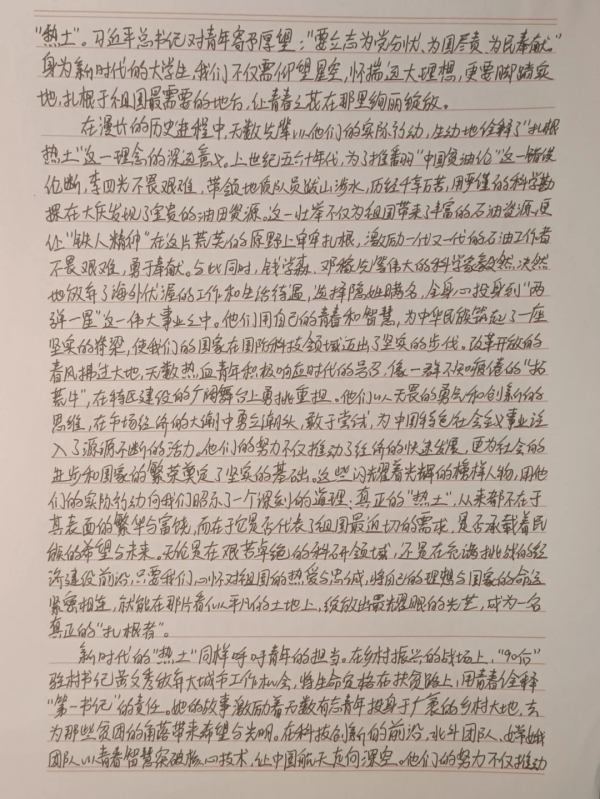 “热土”。习近平总书记对青年寄予厚望：“要立志为党分忧、为国尽责、为民奉献。”
身为新时代的大学生，我们不仅需仰望星空，怀揣远大理想，更要脚踏实
地，扎根于祖国最需要的地方，让青春之花在那里绚丽绽放。
在漫长的历史进程中，无数先辈以他们的实际行动，生动地诠释了“扎根
热土”这一理念的深远意义。上世纪五六十年代，为了推翻“中国贫油论”这一错误
论断，李四光不畏艰难，带领地质队员跋山涉水，历经千辛万苦，用严谨的科学勘
探在大庆发现了宝贵的油田资源。这一壮举不仅为祖国带来了丰富的石油资源，更
让“铁人精神”在这片荒芜的原野上牢牢扎根，激励一代又一代的石油工作者
不畏艰难，勇于奉献。与此同时，钱学森、邓稼先等伟大的科学家毅然决然
地放弃了海外优渥的工作和生活待遇，选择隐姓瞒名，全身心投身到“两
弹一星”这一伟大事业之中。他们用自己的青春和智慧，为中华民族筑起了一座
坚实的脊梁，使我们的国家在国防科技领域迈出了坚实的步伐。改革开放的
春风拂过大地，无数热血青年积极响应时代的号召，像一群不知疲倦的“拓
荒牛”，在特区建设的广阔舞台上勇挑重担。他们以无畏的勇气和创新的
思维，在市场经济的大潮中勇立潮头，敢于尝试，为中国特色社会主义事业注
入了源源不断的活力。他们的努力不仅推动了经济的快速发展，更为社会的
进步和国家的繁荣奠定了坚实的基础。这些闪耀着光辉的榜样人物，用他
们的实际行动向我们昭示了一个深刻的道理：真正的“热土”，从来都不在于
其表面的繁华与富饶，而在于它是否代表了祖国最迫切的需求，是否承载着民
族的希望与未来。无论是在艰苦卓绝的科研领域，还是在充满挑战的经
济建设前沿，只要我们心怀对祖国的热爱与忠诚，将自己的理想与国家的命运
紧密相连，就能在那片看似平凡的土地上，绽放出最耀眼的光芒，成为一名
真正的“扎根者”。
新时代的“热土”同样呼吁青年的担当。在乡村振兴的战场上，“90后”
驻村书记黄文秀放弃大城市工作机会，将生命定格在扶贫路上，用青春诠释
“第一书记”的责任。她的故事激励着无数有志青年投身于广袤的乡村大地，去
为那些贫困的角落带来希望与光明。在科技创新的前沿，北斗团队、嫦娥
团队以青春智慧突破核心技术，让中国航天走向深空。他们的努力不仅推动